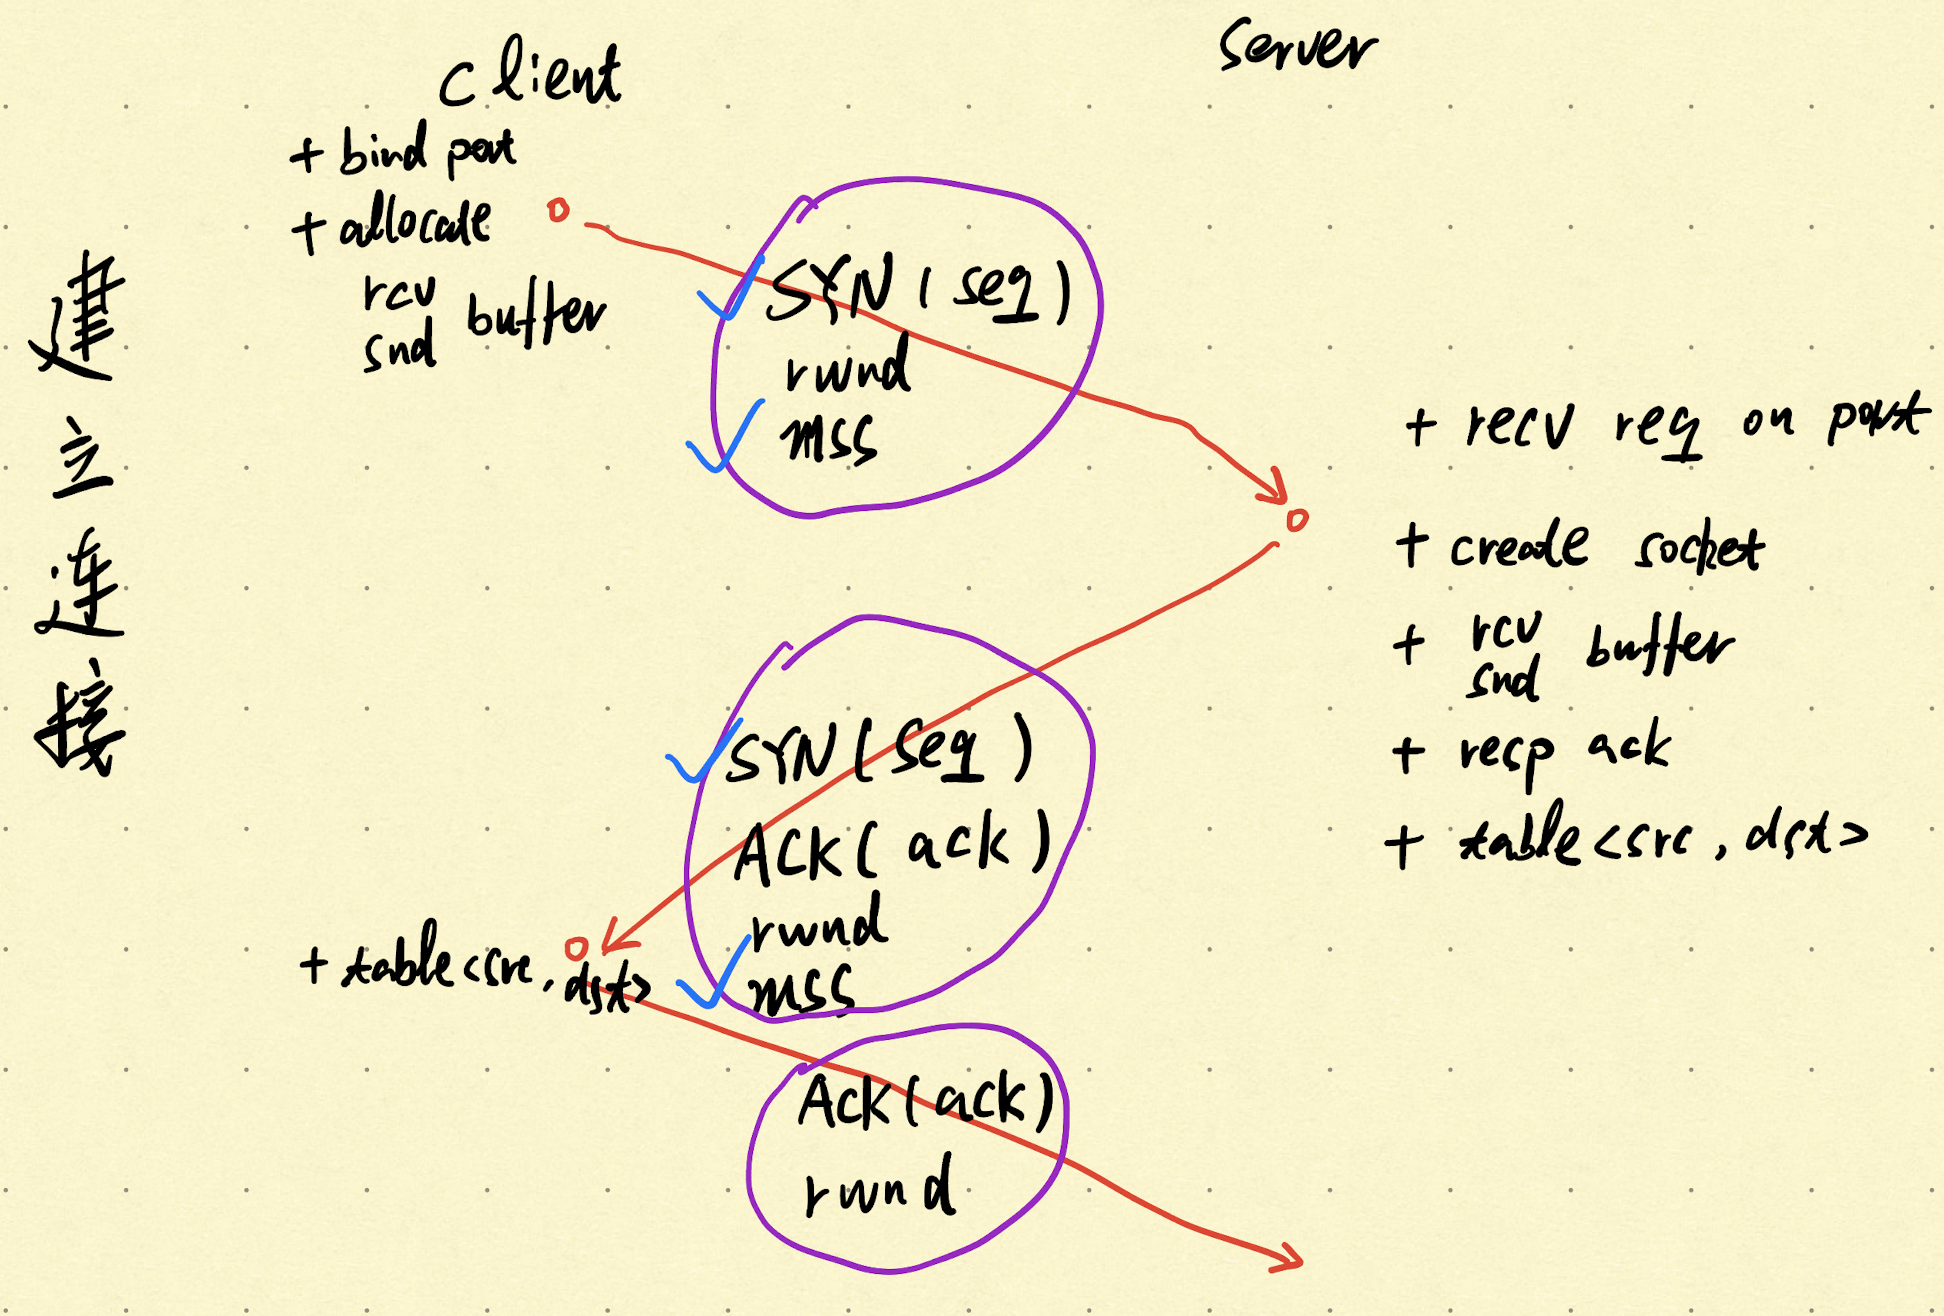 Client
Server
+ bind port
+ allocate
rcv
snd buffer
建立连接
SYN (seq)
rwnd
mss
+ recv req on port
+ create socket
+ rcv
snd buffer
+ resp ack
+ table <src, dst>
SYN (seq)
ACK (ack)
rwnd
mss
+ table <src, dst>
Ack (ack)
rwnd